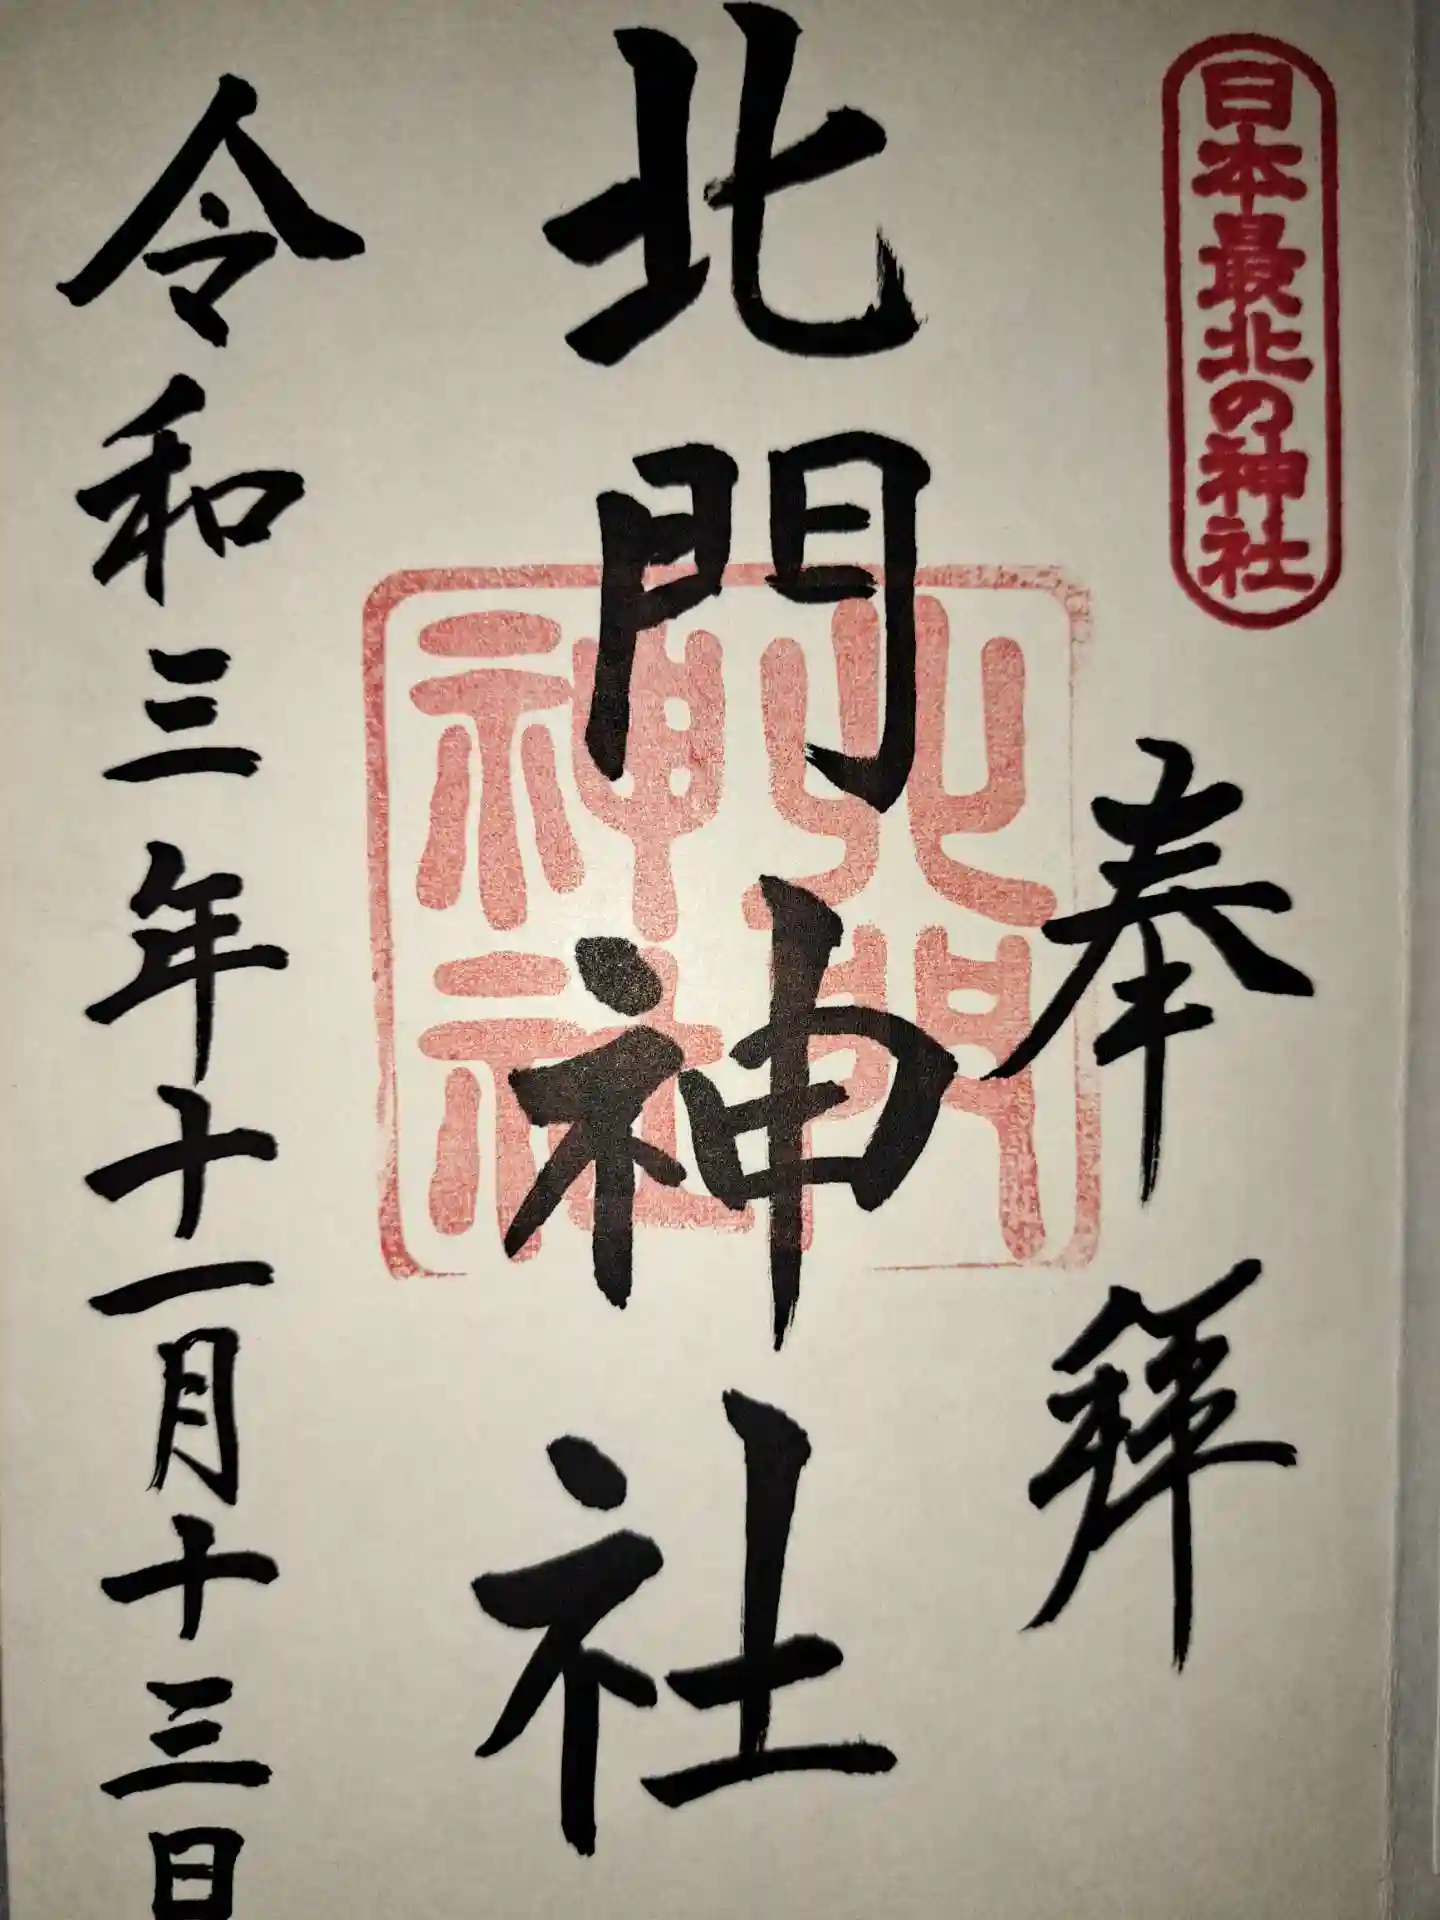 日本最北の神社
奉拝
北門神社
北門神社
令和三年十一月十三日